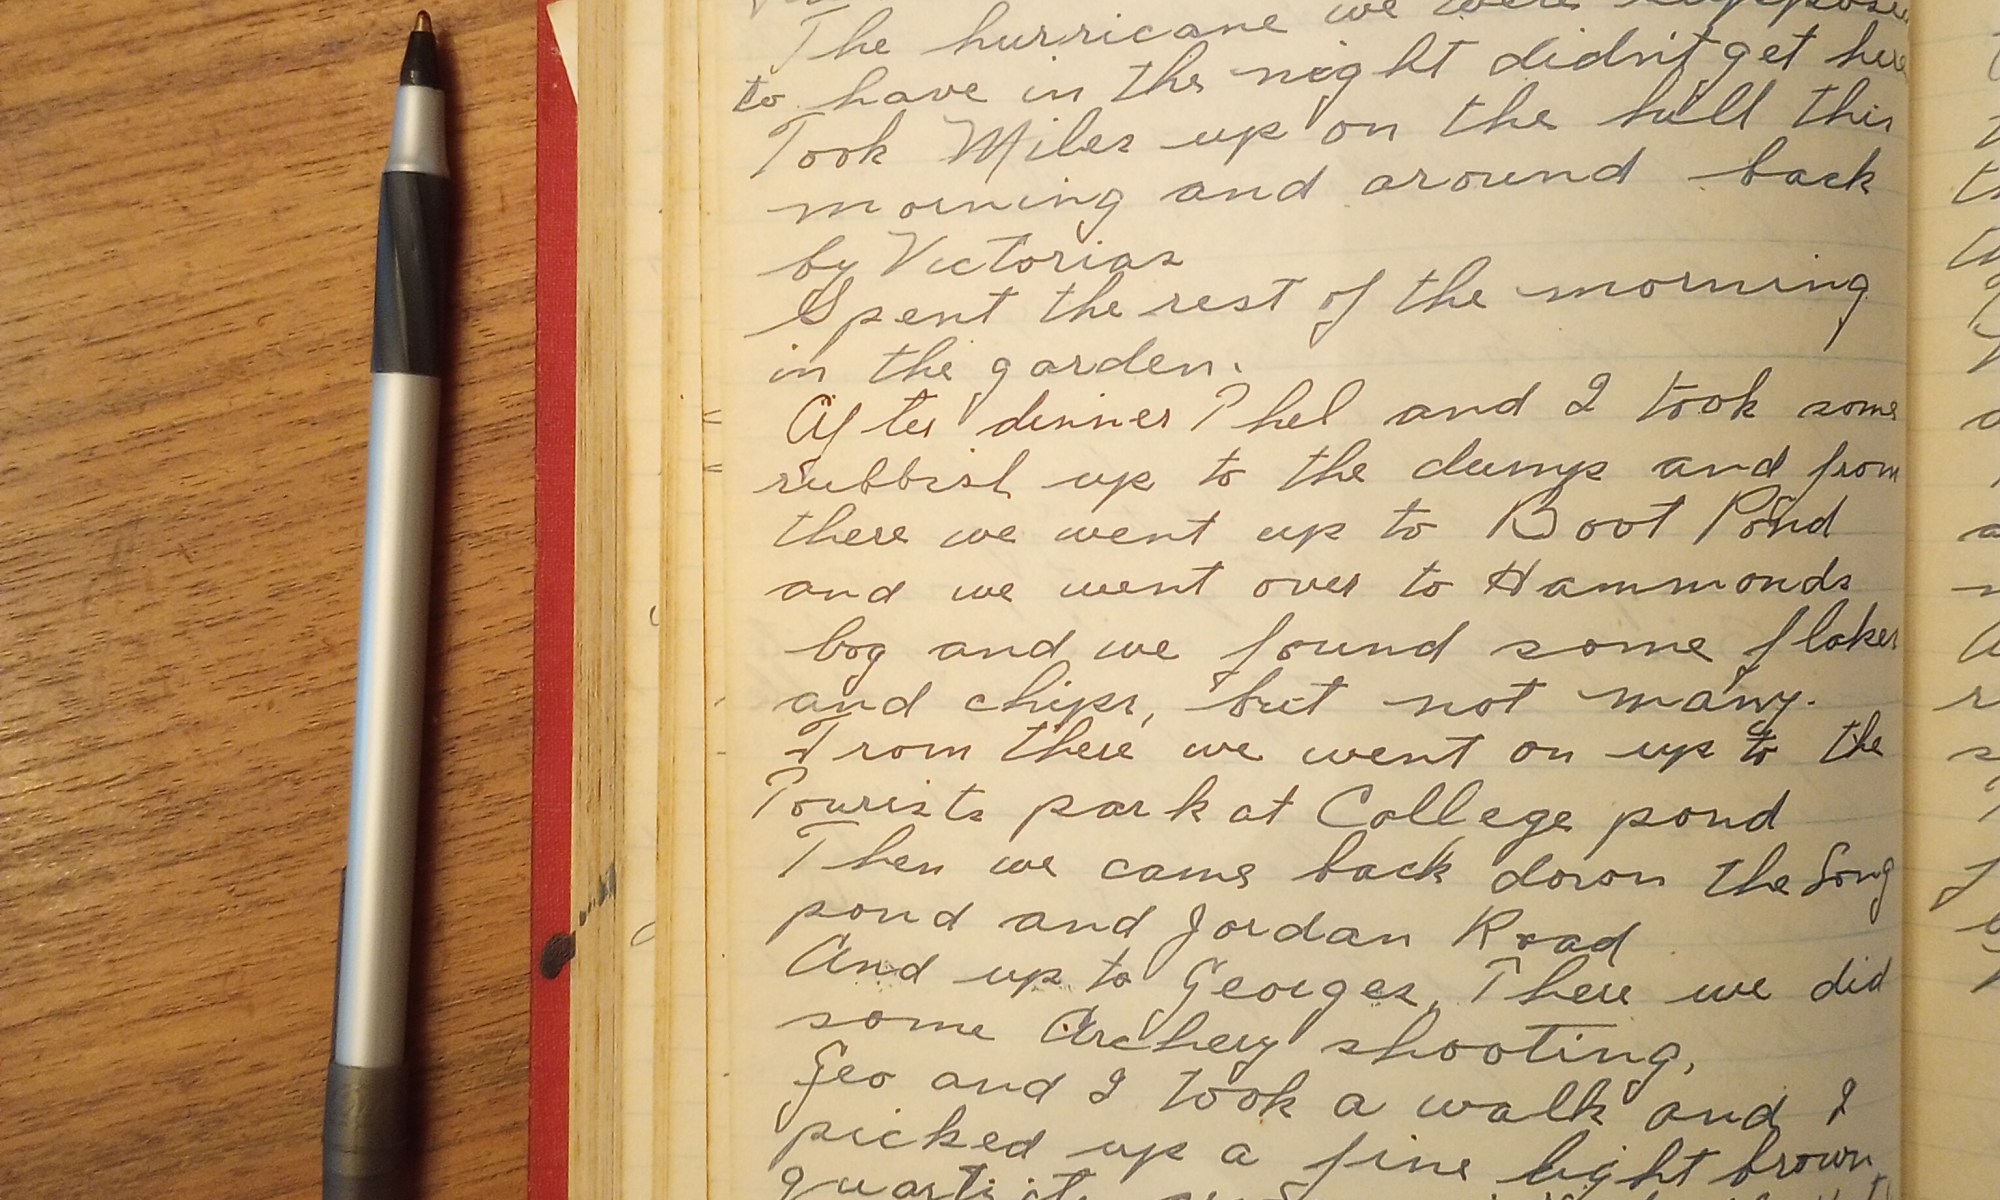 The hurricane we were supposed
to have in the night didn't get here
Took Miles up on the hill this
morning and around back
by Victorias
Spent the rest of the morning
in the garden.
After dinner Phel and I took some
rubbish up to the dump and from
there we went up to Boot Pond
and we went over to Hammonds
bog and we found some flakes
and chips, but not many.
From there we went on up to the
Tourists park at College pond
Then we came back down the Long
pond and Jordan Road
And up to Georges, There we did
some Archery shooting,
Geo and I took a walk and I
picked up a fine light brown